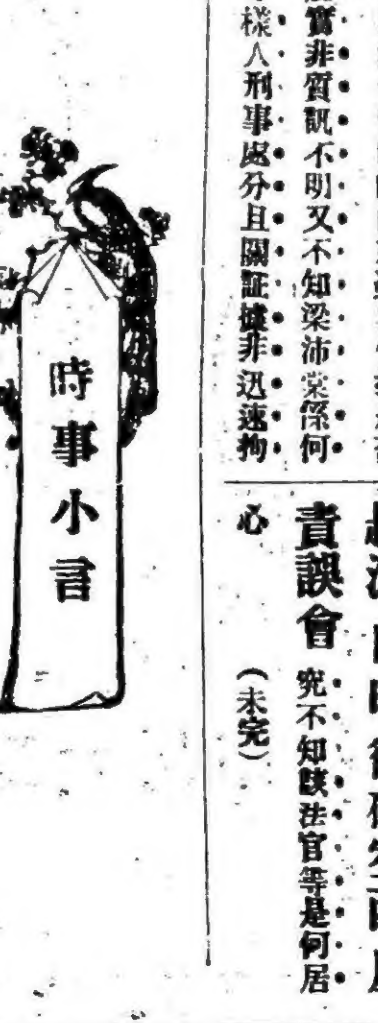 實非質訊不明又不知梁沛棠係何
樣人刑事處分且關証據非迅速拘
責誤會 究不知該法官等是何居
心 (未完)
時事小言